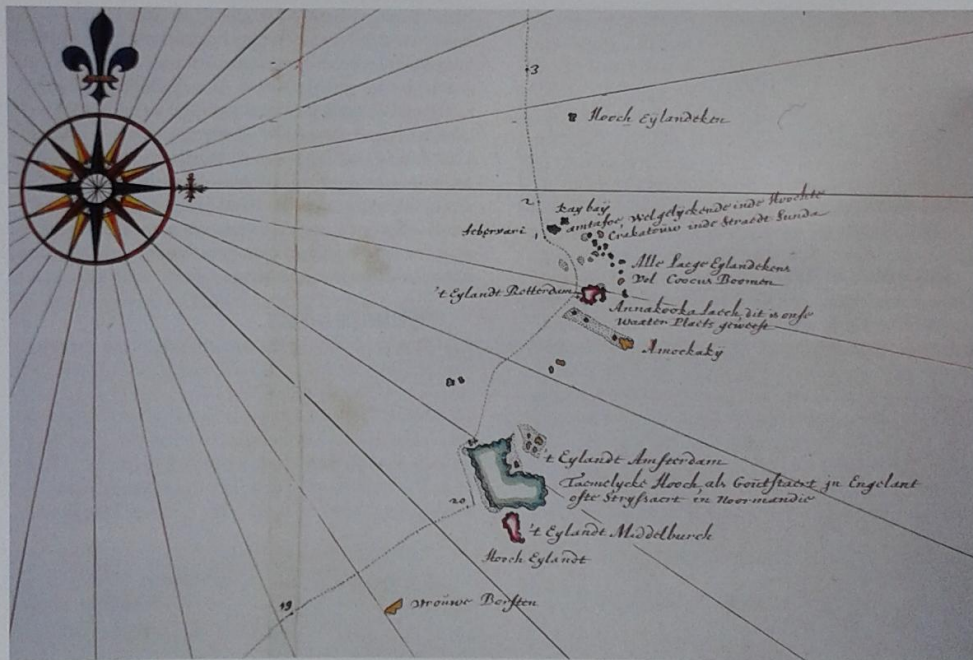 3
Hooch Eylandeken
2
kaybaÿ
amtafoe, welgelÿckende inde Hoochte
Crakatouw inde Straedt Sunda
1
Alle Laege Eylandekens
Vol Coocus Boomen
't Eylandt Rotterdam
Annakooka Laech, dit is onse
Waater Plaets geweest
Amockakÿ
't Eylandt Amsterdam
Taemelycke Hooch, als Goutstaert in Engelant
ofte Strÿssaert in Noormandie
20
't Eylandt Middelburch
Hooch Eylandt
19
Vrouwe Borsten